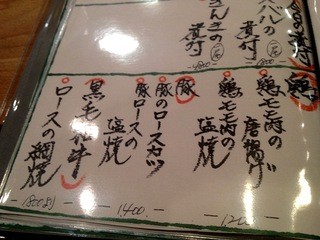 きんきの煮付
煮付
鶏
鶏モモ肉の唐揚げ
鶏モモ肉の塩焼
1200
豚
豚のロースカツ
豚ロースの塩焼
1400.-
黒毛和牛
ロースの網焼
1800より